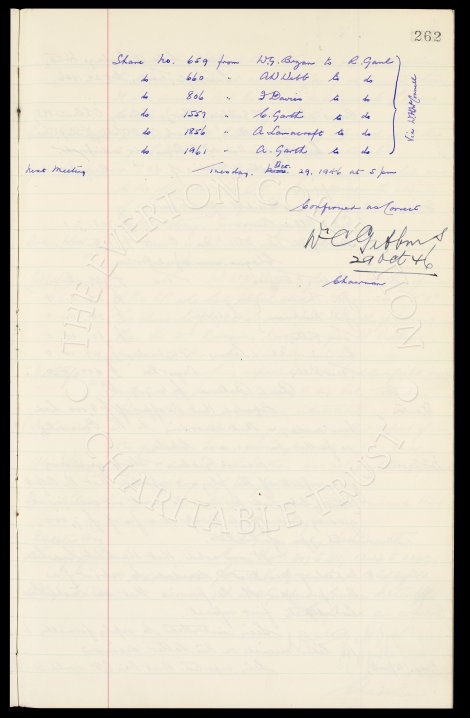 262
Share No. 659 from W.G. Bryan to R. Gaul
do 660 " A.D. Webb to do
do 806 " J Davies to do
do 1557 " C. Garth to do
do 1856 " A. Lancraft to do
do 1961 " A. Garth to do
Next Meeting Tuesday, Oct. 29, 1946 at 5 pm
Confirmed as Correct
Wm C Gibbins
29 Oct 46
Chairman
THE EVERTON COLLECTION
CHARITABLE TRUST